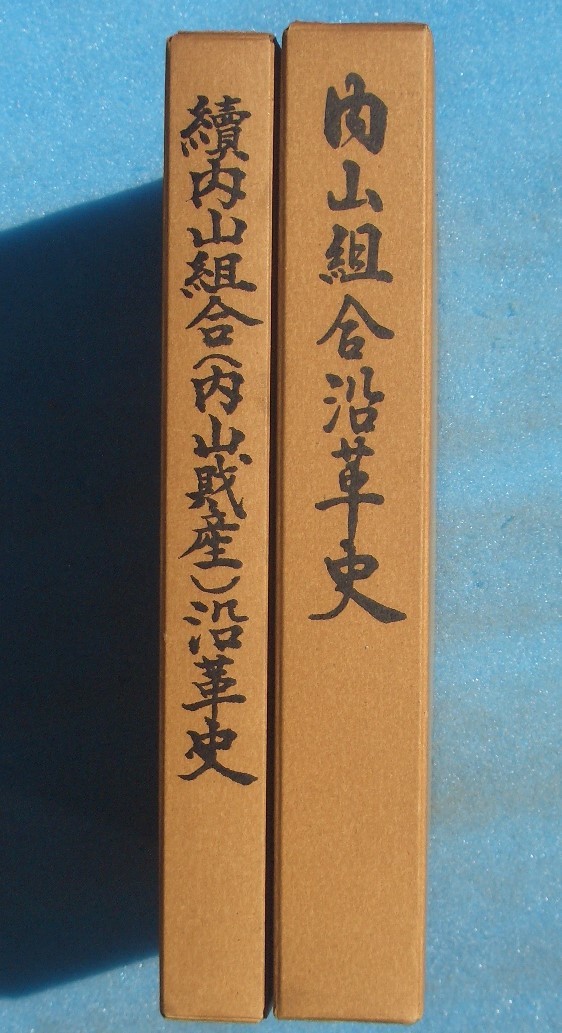 内山組合沿革史
續内山組合(内山財産)沿革史